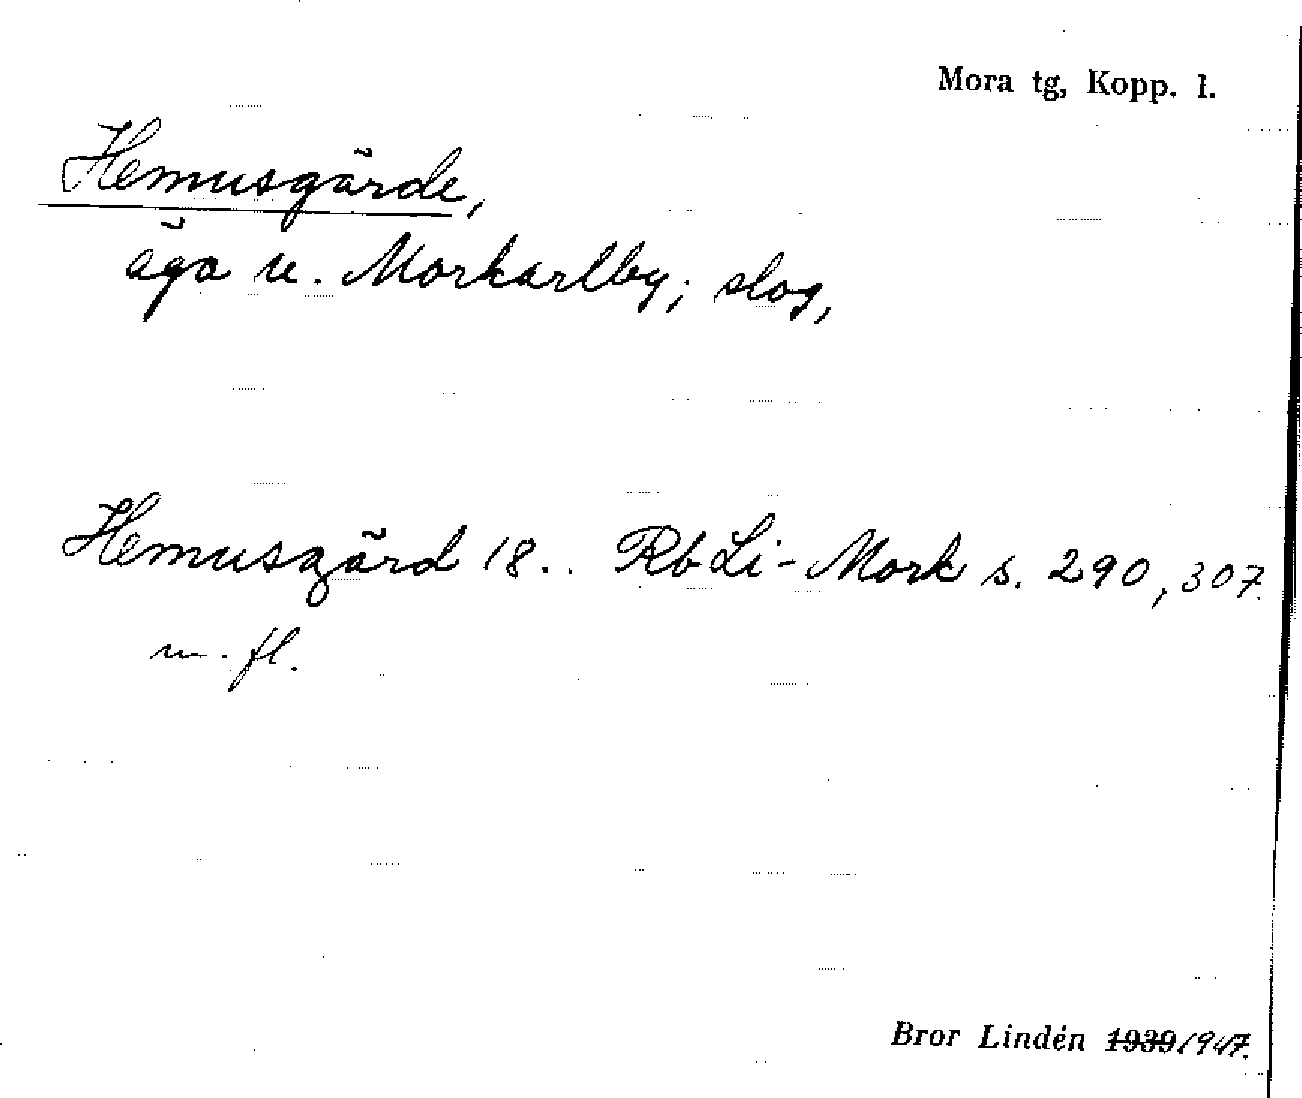 Mora tg, Kopp. l.
Hemusgärde,
äga u. Morkarlby; slog,
Hemusgärd 18.. Rb Li-Mork s. 290, 307.
m. fl.
Bror Lindén 1939 1947.